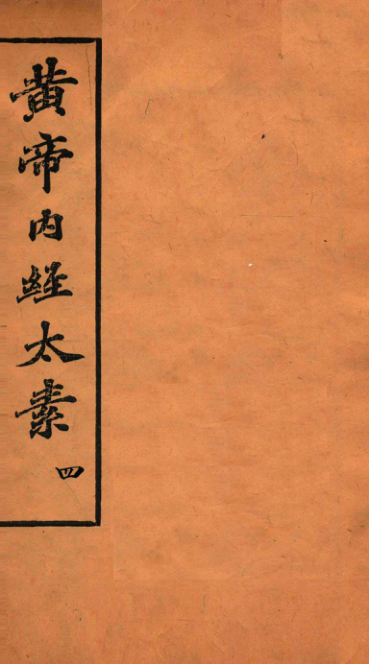 黄帝内經太素
四